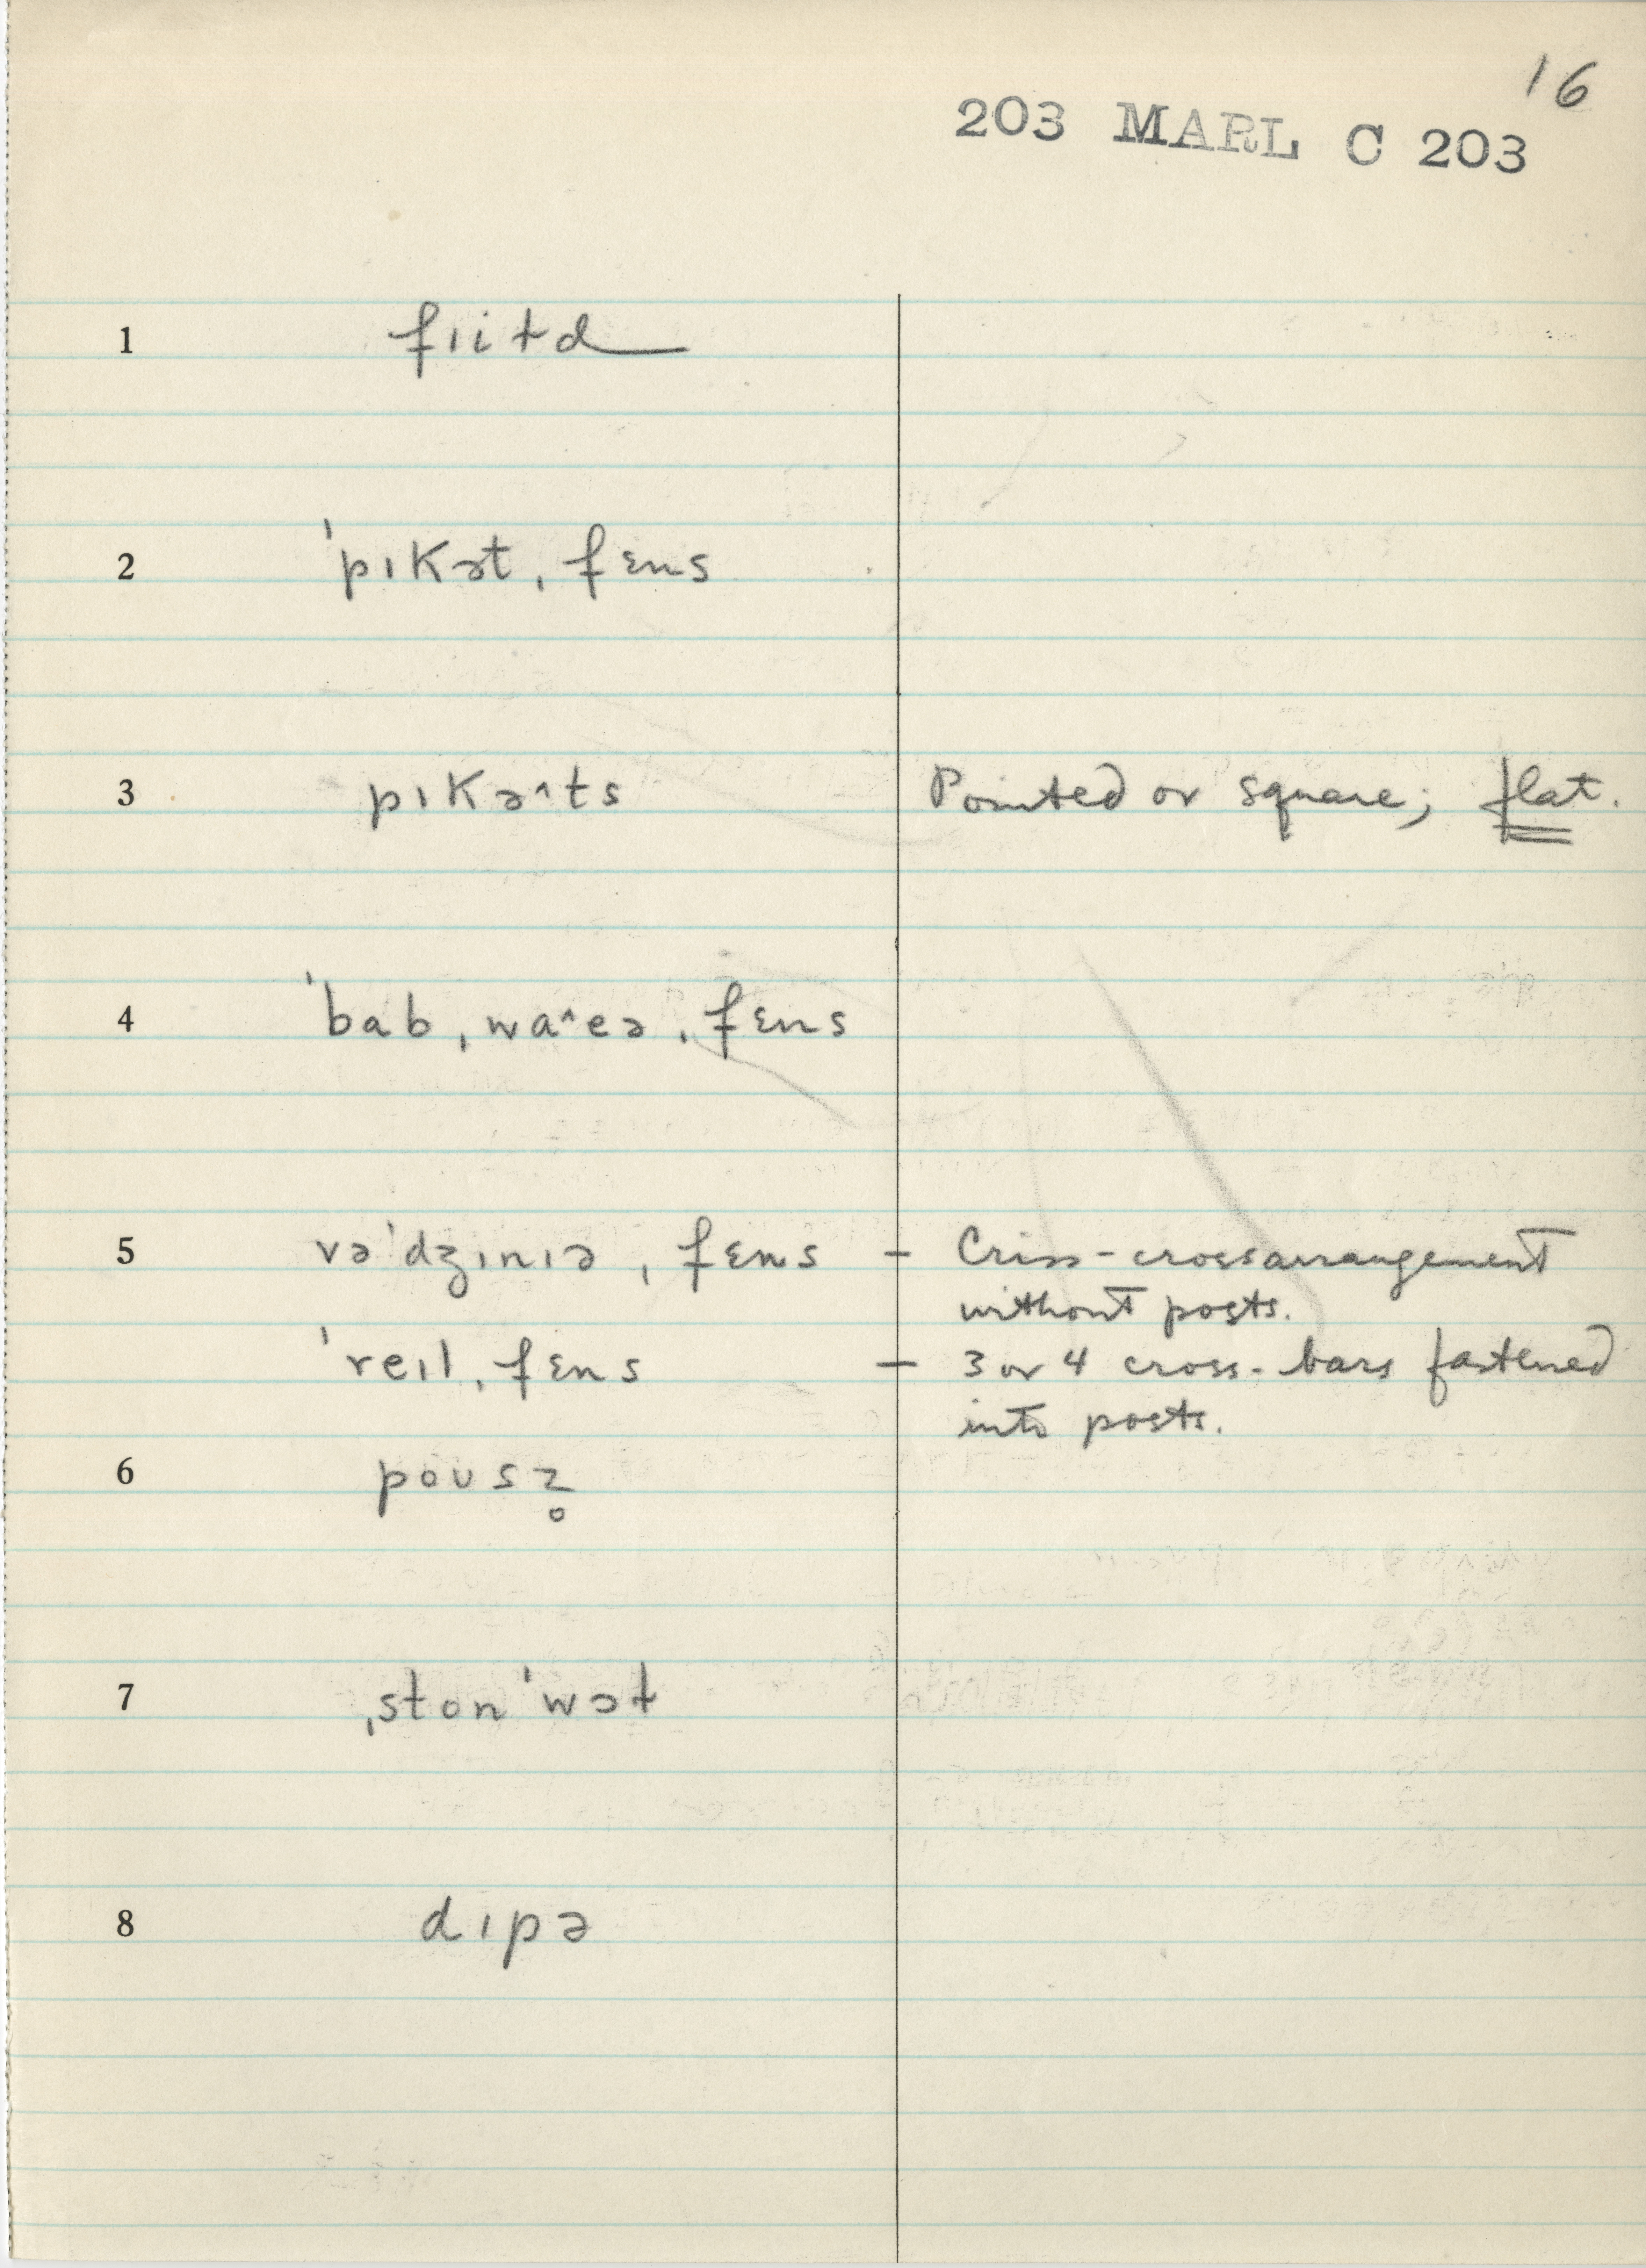 16
203 MARL C 203
1 fɪitd
2 ˈpɪkət ˌfɛns
3 pɪkə^ts Pointed or square; flat.
4 ˈbab ˌwa^eə ˌfɛns
5 vəˈdʒɪnɪə ˌfɛns – Criss-cross arrangement
without posts.
ˈreɪl ˌfɛns – 3 or 4 cross-bars fastened
into posts.
6 poʊsz̥
7 ˌstonˈwɔɫ
8 dɪpə